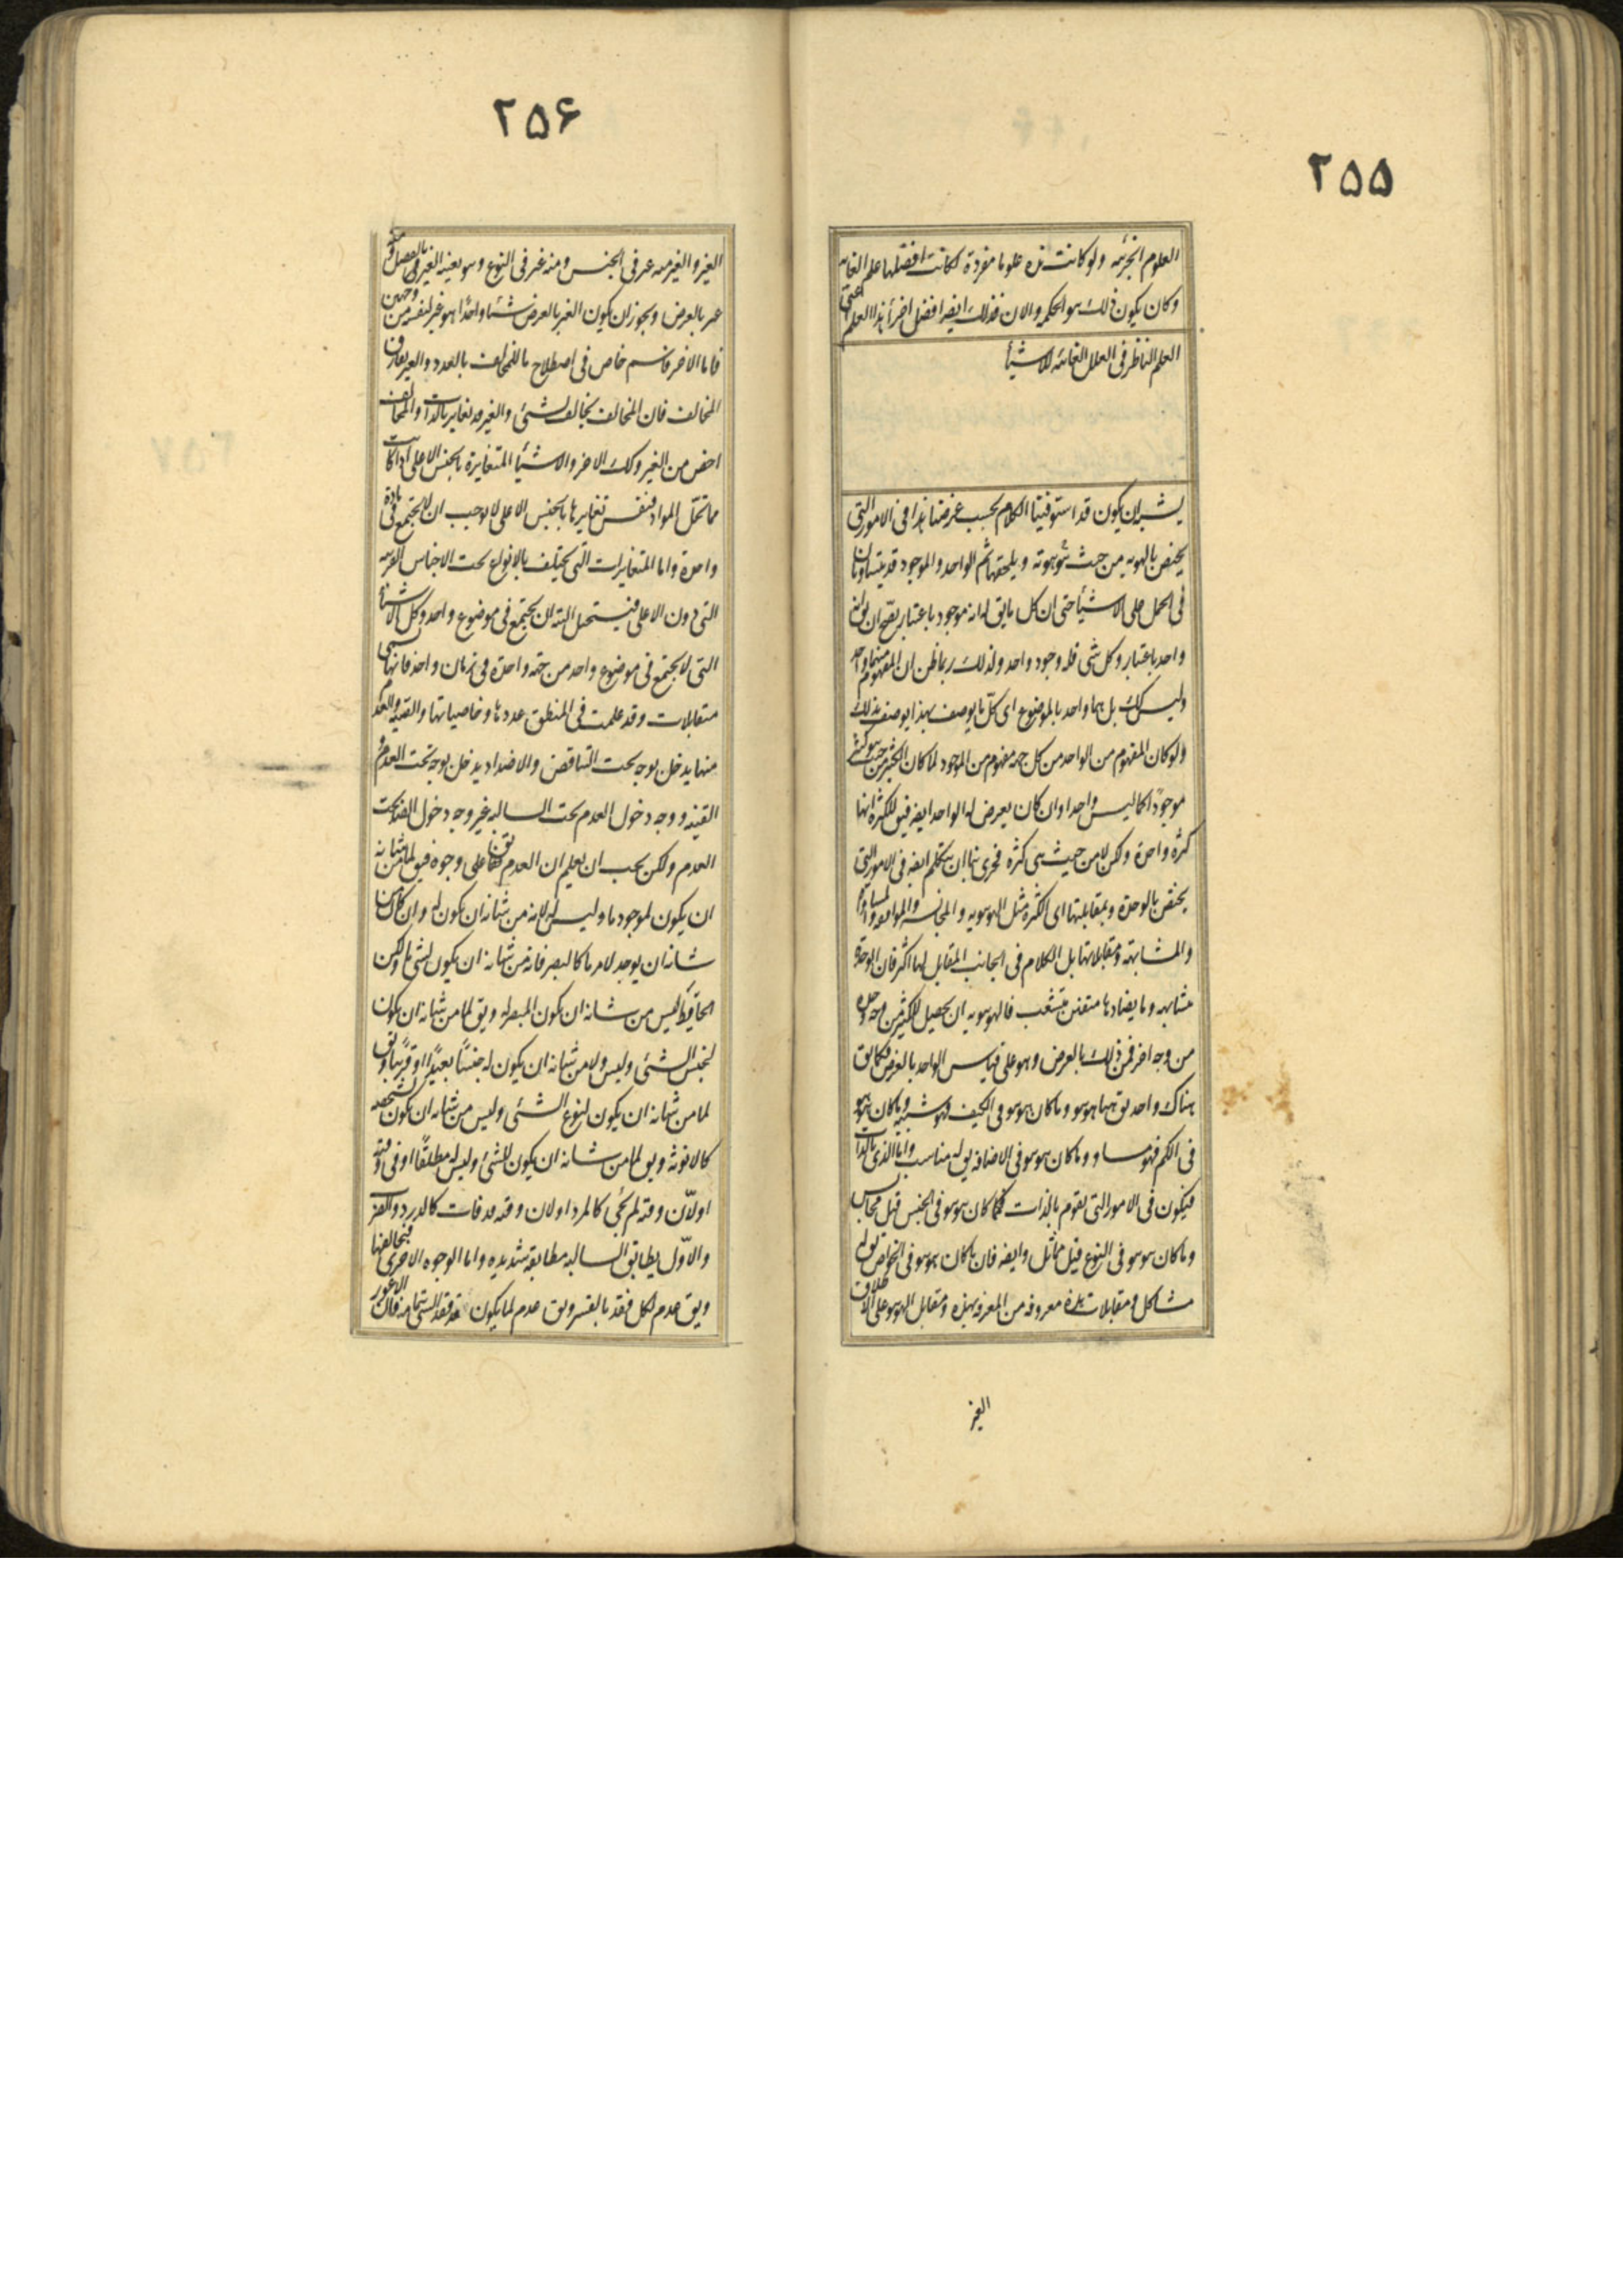 ۲۵۵
العلوم الجزئیه ولو کانت هذه علوما مفردة لکانت افضلها علم الغایه
وکان یکون ذلک هو الحکمه والان فذلک ایضه افضل اجزأ هذا العلم اعنی
العلم الناظر فی العلل الغائیه للاشیأ
یشبه ان یکون قد استوفینا الکلام بحسب غرضنا هذا فی الامور التی
یختص بالهویه من حیث هی هویة و یلحقها ثم الواحد والموجود قد یتساویان
فی الحمل علی الاشیأ حتی ان کل ما یق له انه موجود باعتبار یصح ان یق له انه
واحد باعتبار وکل شی فله وجود واحد ولذلک ربما ظن ان المفهوم منهما واحد
ولیس کک بل هما واحد بالموضوع ای کل ما یوصف بهذا یوصف بذلک
ولو کان المفهوم من الواحد من کل جهه مفهوم من الموجود لما کان الکثیر من حیث هو کثیر
موجودًا کما لیس واحدا وان کان یعرض له الواحد ایضه فیق للکثره انها
کثره واحدة ولکن لا من حیث هی کثره فحری بنا ان نتکلم ایضه فی الامور التی
یختص بالوحدة وبمقابلتها ای الکثره مثل الهوهویه و المجانسه والموافقه والمساواة
والمشابهه ومقابلاتها بل الکلام فی الجانب المقابل لها اکثر فان الوحدة
متشابهه وما یضادها متفنن متشعب فالهوهویه ان یحصل للکثیر من وجه وحده
من وجه اخر فمن ذلک بالعرض وهو علی قیاس الواحد بالعرض فکما یق
هناک واحد یق ههنا هوهو وما کان هوهو فی الکیف فهو شبیه وما کان هوهو
فی الکم فهو مساو وما کان هوهو فی الاضافه یق له مناسب واما الذی بالذات
فیکون فی الامور التی تقوم بالذات فما کان هوهو فی الجنس قیل مجانس
وما کان هوهو فی النوع قیل مماثل وایضه فان ما کان هوهو فی الخواص یق له
مشاکل و مقابلات هذه معروفه من المعرفه بهذه ومقابل الهوهو علی الاطلاق
الغیر
۲۵۶
الغیر والغیر منه غیر فی الجنس ومنه غیر فی النوع وهو بعینه الغیر بالفصل ومنه
غیر بالعرض ویجوز ان یکون الغیر بالعرض شیئا واحدًا هو غیر لنفسه من وجهین
فاما الاخر فاسم خاص فی اصطلاح ما للمخالف بالعدد والغیر یفارق
المخالف فان المخالف یخالف بشئ والغیر قد یغایر بالذات والمخالف
اخص من الغیر وکک الاخر والاشیأ المتغایرة بالجنس الاعلی اذا کانت
مما تحل المواد فنفس تغایرها بالجنس الاعلی لا یوجب ان لا یجتمع فی مادة
واحدة واما المتغایرات التی تختلف بالانواع تحت الاجناس القریبه
التی دون الاعلی فیستحیل البته ان یجتمع فی موضوع واحد وکل الاشیأ
التی لا یجتمع فی موضوع واحد من جهه واحدة فی زمان واحد فانها تسمی
متقابلات وقد علمت فی المنطق عددها وخاصیاتها والقنیه والعدم
منها یدخل بوجه تحت التناقض والاضداد یدخل بوجه تحت العدم و
القنیه ووجه دخول العدم تحت السالبه غیر وجه دخول الضد تحت
العدم ولکن یجب ان یعلم ان العدم یق علی وجوه فیق لما من شانه
ان یکون لموجود ما ولیس له لانه لیس من شانه ان یکون له وان کان من
شانه ان یوجد لامر ما کالبصر فانه من شانه ان یکون لشئ ما ولکن
الحایط لیس من شانه ان یکون البصر له ویق لما من شانه ان یکون
لجنس الشئ ولیس ولا من شانه ان یکون له جنسًا بعیدًا او قریبًا ویق
لما من شانه ان یکون لنوع الشئ ولیس من شانه ان یکون لشخصه
کالانوثه ویق لما من شانه ان یکون للشئ ولیس له مطلقًا او فی وقته
او لان وقته لم یجئ کالمرد او لان وقته قد فات کالدرد والضرب
والاول یطابق السالبه مطابقه شدیده واما الوجوه الاخری فتخالفها
ویق عدم لکل فقد بالقسر ویق عدم لما یکون قد فقد الشئ بتمامه فان الاعور